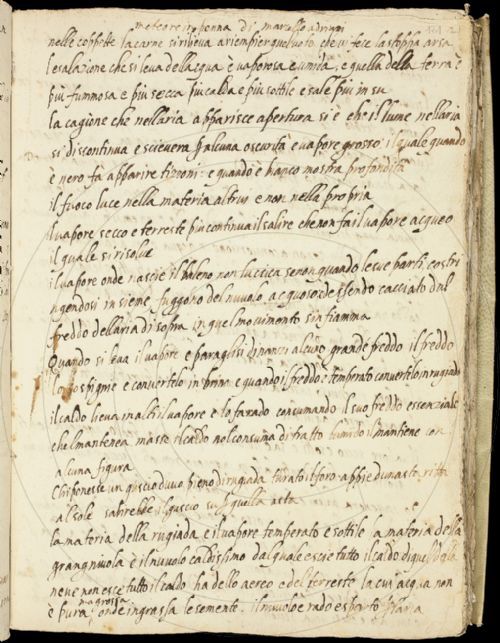 meteore in penna di marzello adriani
nelle coppette la carne si rileva a riempier quel voto che vi fece la stoppa arsa
lesalazione che si leva dellacqua è vaporosa e umida, e quella della terra è
più fummosa e più secca più calda e più sottile e sale più in su
la cagione che nellaria apparisce apertura si è che il lume nellaria
si discontinua e scievera p alcuna oscurità e vapore grosso il quale quando
è nero fa apparire tizzoni e quando è bianco mostra profondità
il fuoco luce nella materia altrui e non nella propria
il vapore secco e terreste più continua il salire che non fa il vapore acqueo
il quale si risolve
il vapore onde nascie il baleno non luccica se non quando le sue parti costri
ngendosi insieme fuggono del nuvolo acquoso ed essendo cacciato dal
freddo dellaria di sopra in quel movimento sinfiamma
Quando si leva il vapore e paragli si dinanzi alcuno grande freddo il freddo
lo spignie e convertelo in brina e quando il freddo è temperato convertelo in rugiada
il caldo lieva in alti il vapore e lo fa rado consumando il suo freddo essenziale
che l mantenea ma se il caldo nol consuma di tratto lumido il mantiene con
alcuna figura
Chi ponesse un guscio duovo pieno di rugiada turato il foro appiè duna asta ritta
al sole salirebbe il guscio su p quella asta
la materia della rugiada è il vapore temperato e sottile la materia della
grangniuola è il nuvolo caldissimo dal quale escie tutto il caldo di que della
neve non escie tutto il caldo ha dello aereo e del terreste la cui acqua non
è pura ma grossa onde ingrassa le semente il nuvolo è rado e sparto p laria